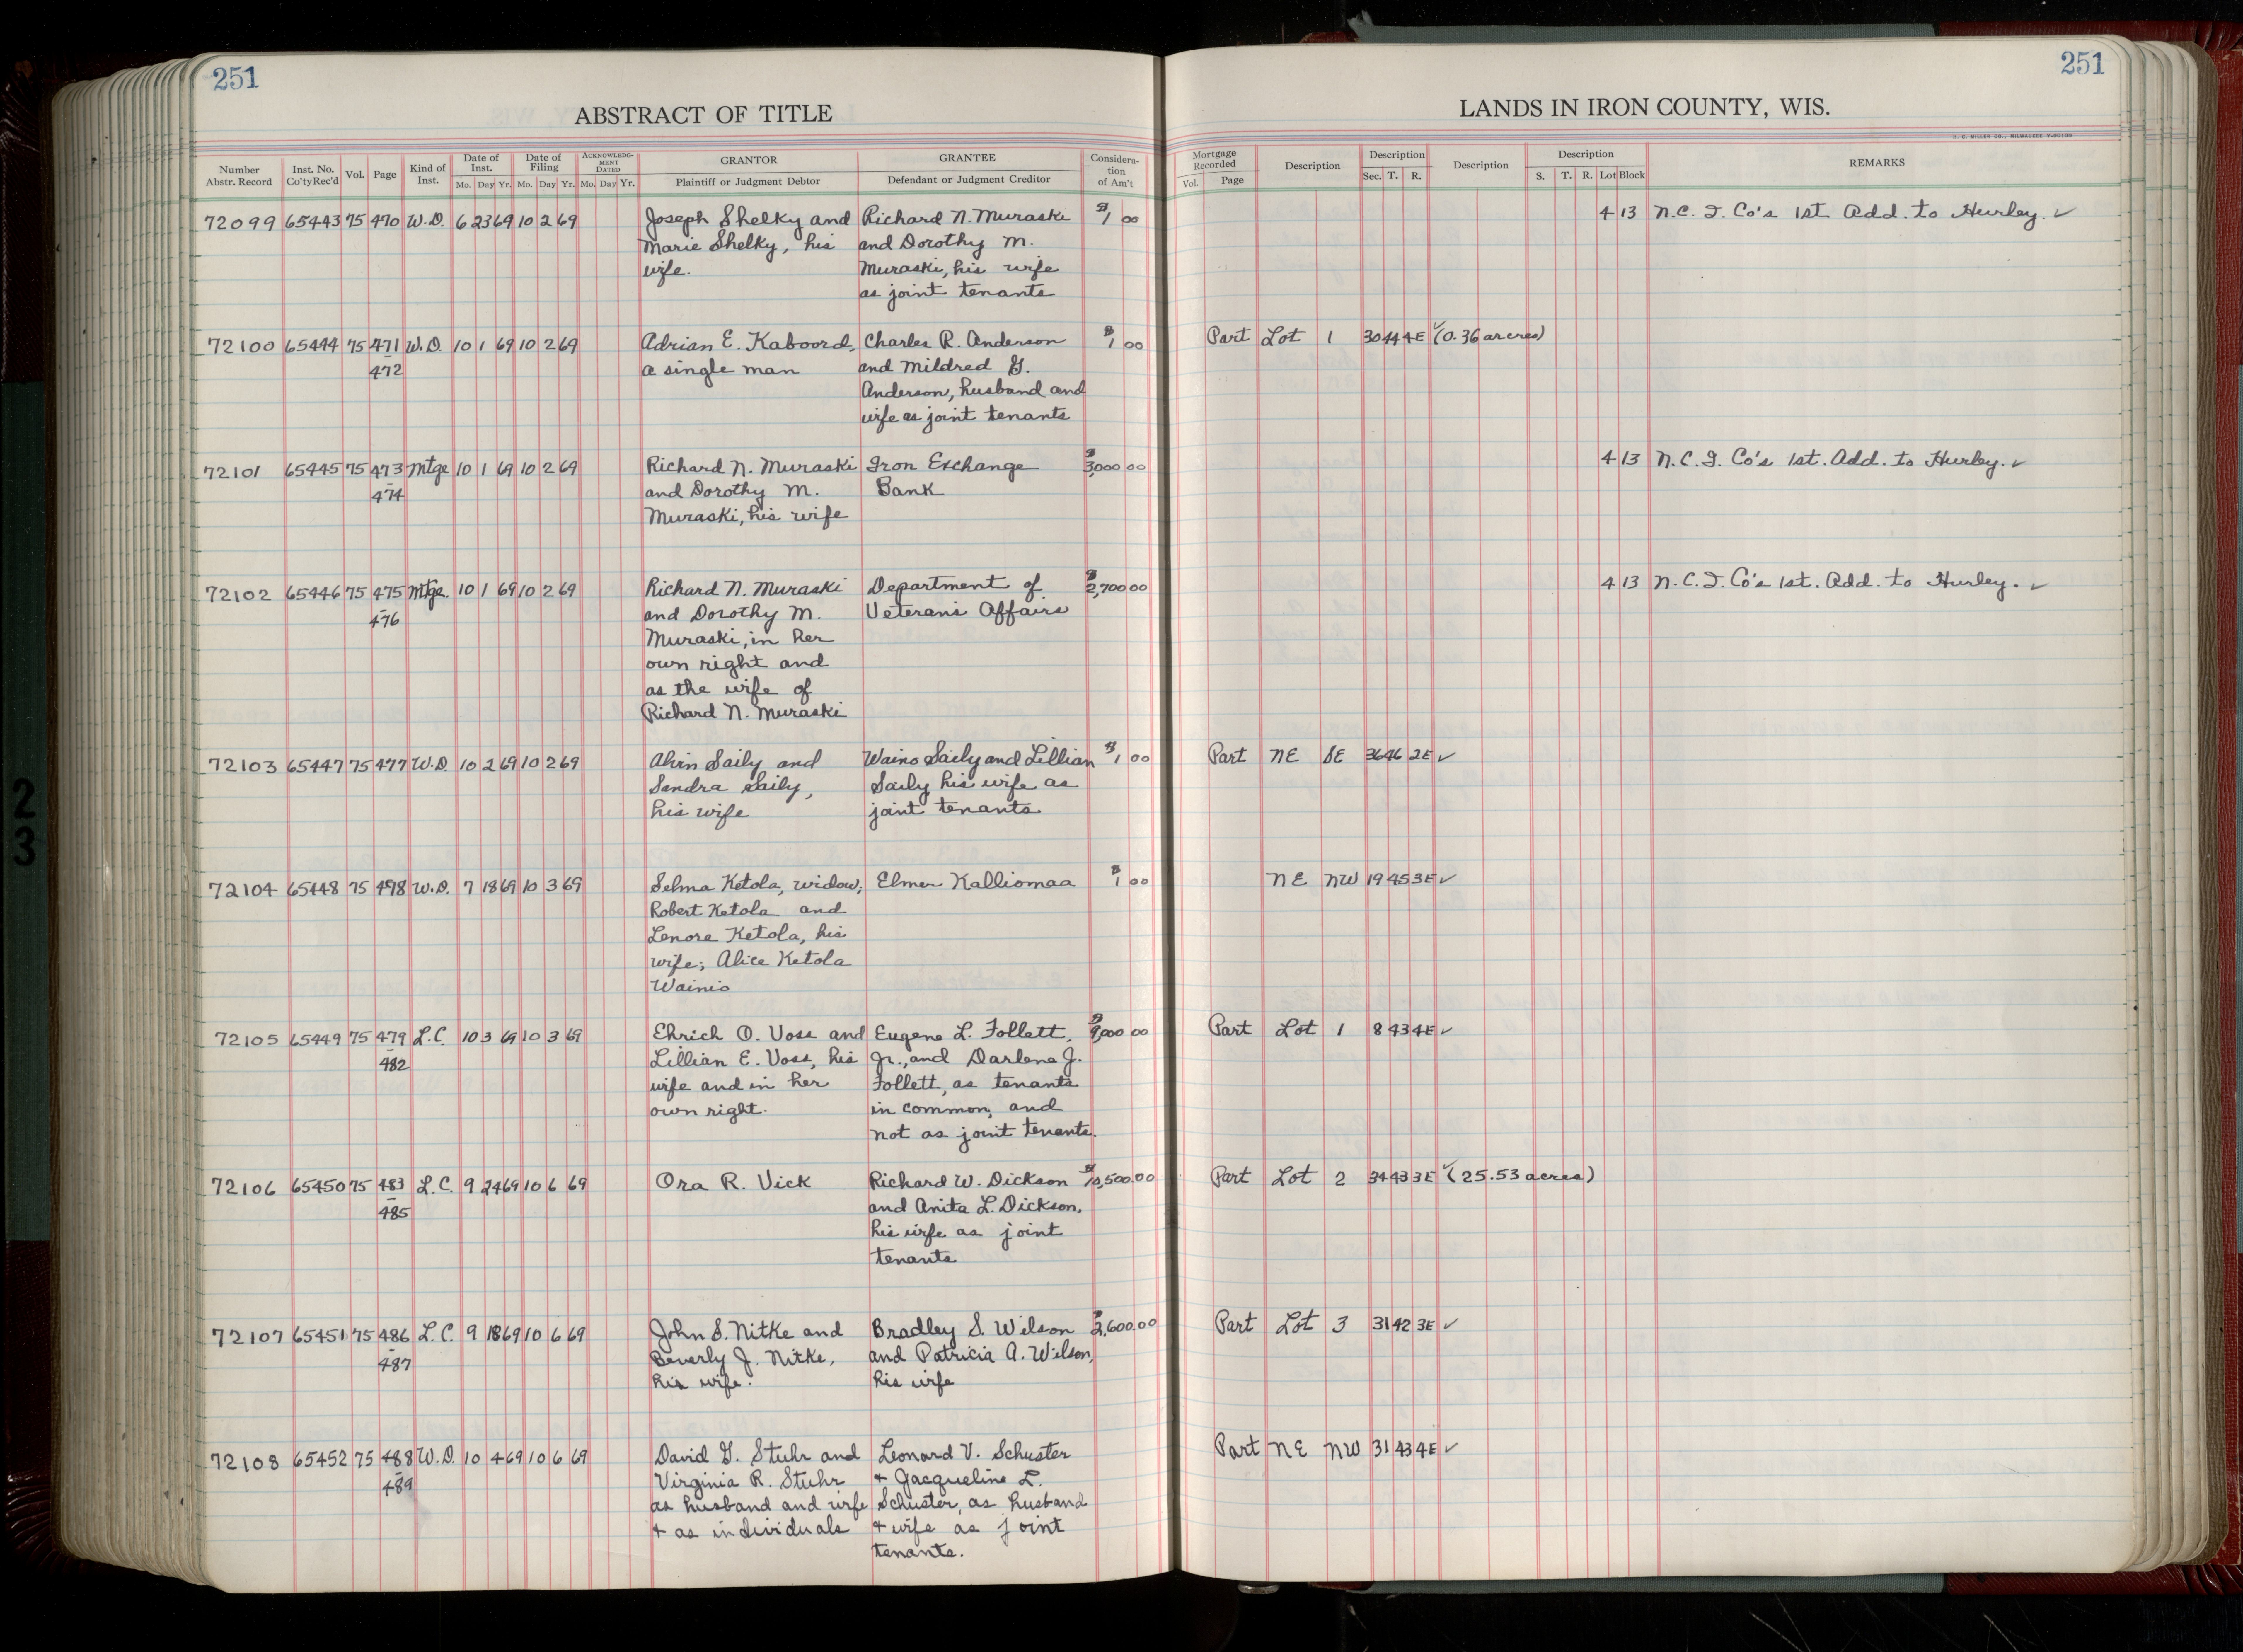 251
ABSTRACT OF TITLE
Number Abstr. Record | Inst. No. Co'ty Rec'd | Vol. | Page | Kind of Inst. | Date of Inst. Mo. Day Yr. | Date of Filing Mo. Day Yr. | ACKNOWLEDGMENT DATED Mo. Day Yr. | GRANTOR Plaintiff or Judgment Debtor | GRANTEE Defendant or Judgment Creditor | Consideration of Am't
72099 65443 75 470 W.D. 6 23 69 10 2 69 Joseph Shelky and Richard N. Muraski $1 00
Marie Shelky, his and Dorothy M.
wife. Muraski, his wife
as joint tenants
72100 65444 75 471 W.D. 10 1 69 10 2 69 Adrian E. Kaboord, Charles R. Anderson $1 00
472 a single man and Mildred G.
Anderson, husband and
wife as joint tenants
72101 65445 75 473 Mtge 10 1 69 10 2 69 Richard N. Muraski Iron Exchange $3,000 00
474 and Dorothy M. Bank
Muraski, his wife
72102 65446 75 475 Mtge. 10 1 69 10 2 69 Richard N. Muraski Department of $2,700 00
476 and Dorothy M. Veterans Affairs
Muraski, in her
own right and
as the wife of
Richard N. Muraski
72103 65447 75 477 W.D. 10 2 69 10 2 69 Alvin Saily and Waino Saily and Lillian $1 00
Sandra Saily, Saily his wife as
his wife joint tenants
72104 65448 75 478 W.D. 7 18 69 10 3 69 Selma Ketola, widow; Elmer Kalliomaa $1 00
Robert Ketola and
Lenore Ketola, his
wife; Alice Ketola
Wainio
72105 65449 75 479 L.C. 10 3 69 10 3 69 Ehrich O. Voss and Eugene L. Follett, $9,000 00
482 Lillian E. Voss, his Jr., and Darlene J.
wife and in her Follett, as tenants
own right. in common, and
not as joint tenants.
72106 65450 75 483 L.C. 9 24 69 10 6 69 Ora R. Vick Richard W. Dickson $10,500.00
485 and Anita L. Dickson,
his wife as joint
tenants
72107 65451 75 486 L.C. 9 18 69 10 6 69 John S. Nitke and Bradley S. Wilson $2,600.00
487 Beverly J. Nitke, and Patricia A. Wilson,
his wife. his wife
72108 65452 75 488 W.D. 10 4 69 10 6 69 David G. Stuhr and Leonard V. Schuster
489 Virginia R. Stuhr + Jacqueline L.
as husband and wife Schuster, as husband
+ as individuals + wife as joint
tenants.
251
LANDS IN IRON COUNTY, WIS.
H. C. MILLER CO., MILWAUKEE Y-90100
Mortgage Recorded Vol. Page | Description | Description Sec. T. R. | Description | Description S. T. R. Lot Block | REMARKS
4 13 N.C.I. Co's 1st Add. to Hurley. ✓
Part Lot 1 30 44 4E ✓ (0.36 acres)
4 13 N.C.I. Co's 1st. Add. to Hurley. ✓
4 13 N.C.I. Co's 1st. Add. to Hurley. ✓
Part NE SE 36 46 2E ✓
NE NW 19 45 3E ✓
Part Lot 1 8 43 4E ✓
Part Lot 2 34 43 3E ✓ (25.53 acres)
Part Lot 3 31 42 3E ✓
Part NE NW 31 43 4E ✓
23